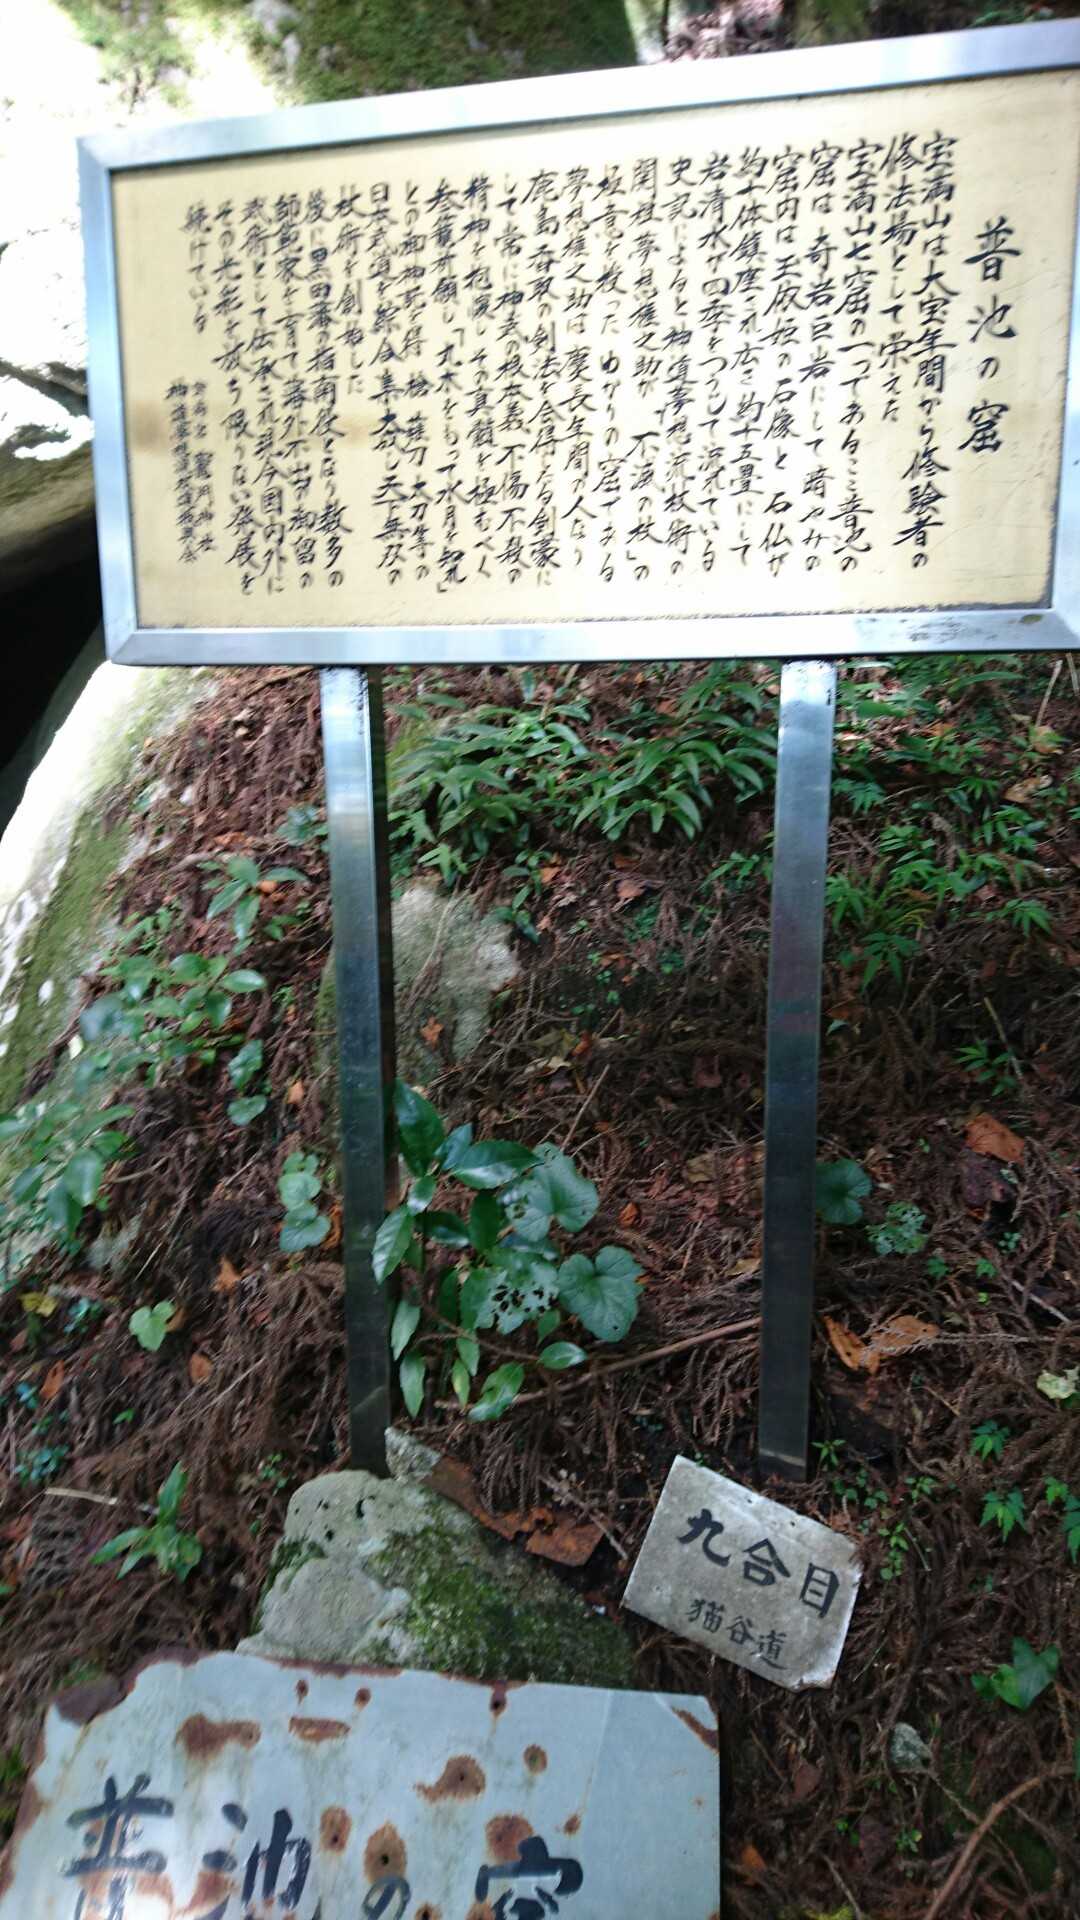 普池の窟
宝満山は大宝年間から修験者の
修法場として栄えた
宝満山七窟の一つであるここ普池の
窟は 奇岩巨岩にして暗やみの
窟内は玉依姫の石像と石仏が
約十体鎮座され広さ約十五畳にして
岩清水が四季をつうじて流れている
史記によると神道夢想流杖術の
開祖夢想権之助が「不湏の杖」の
極意を授った ゆかりの窟である
夢想権之助は慶長年間の人なり
鹿島香取の剣法を会得したる剣豪に
して常に神武の根本義、不傷不殺の
精神を抱懐しその真髄を極むべく
参籠祈願し「丸木をもって水月を知れ」
との御神託を得 槍 薙刀 太刀等の
日本武道を綜合 集大成し天下無双の
杖術を創始した
後に黒田藩の指南役となり数多の
師範家を育て藩外不出の御留の
武術として伝承され現今国内外に
その光彩を放ち限りない発展を
続けている
竈門神社
神道夢想流杖道振興会
九合目
猫谷道
普池の窟